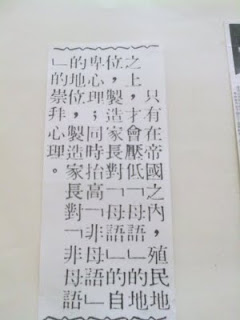 只有在帝國之內，殖民地
之上，才會壓低「母語」的地
位，製造家長對「母語」的自
卑心理；同時抬高「非母語」
的地位，製造家長對「非母語
」的崇拜心理。